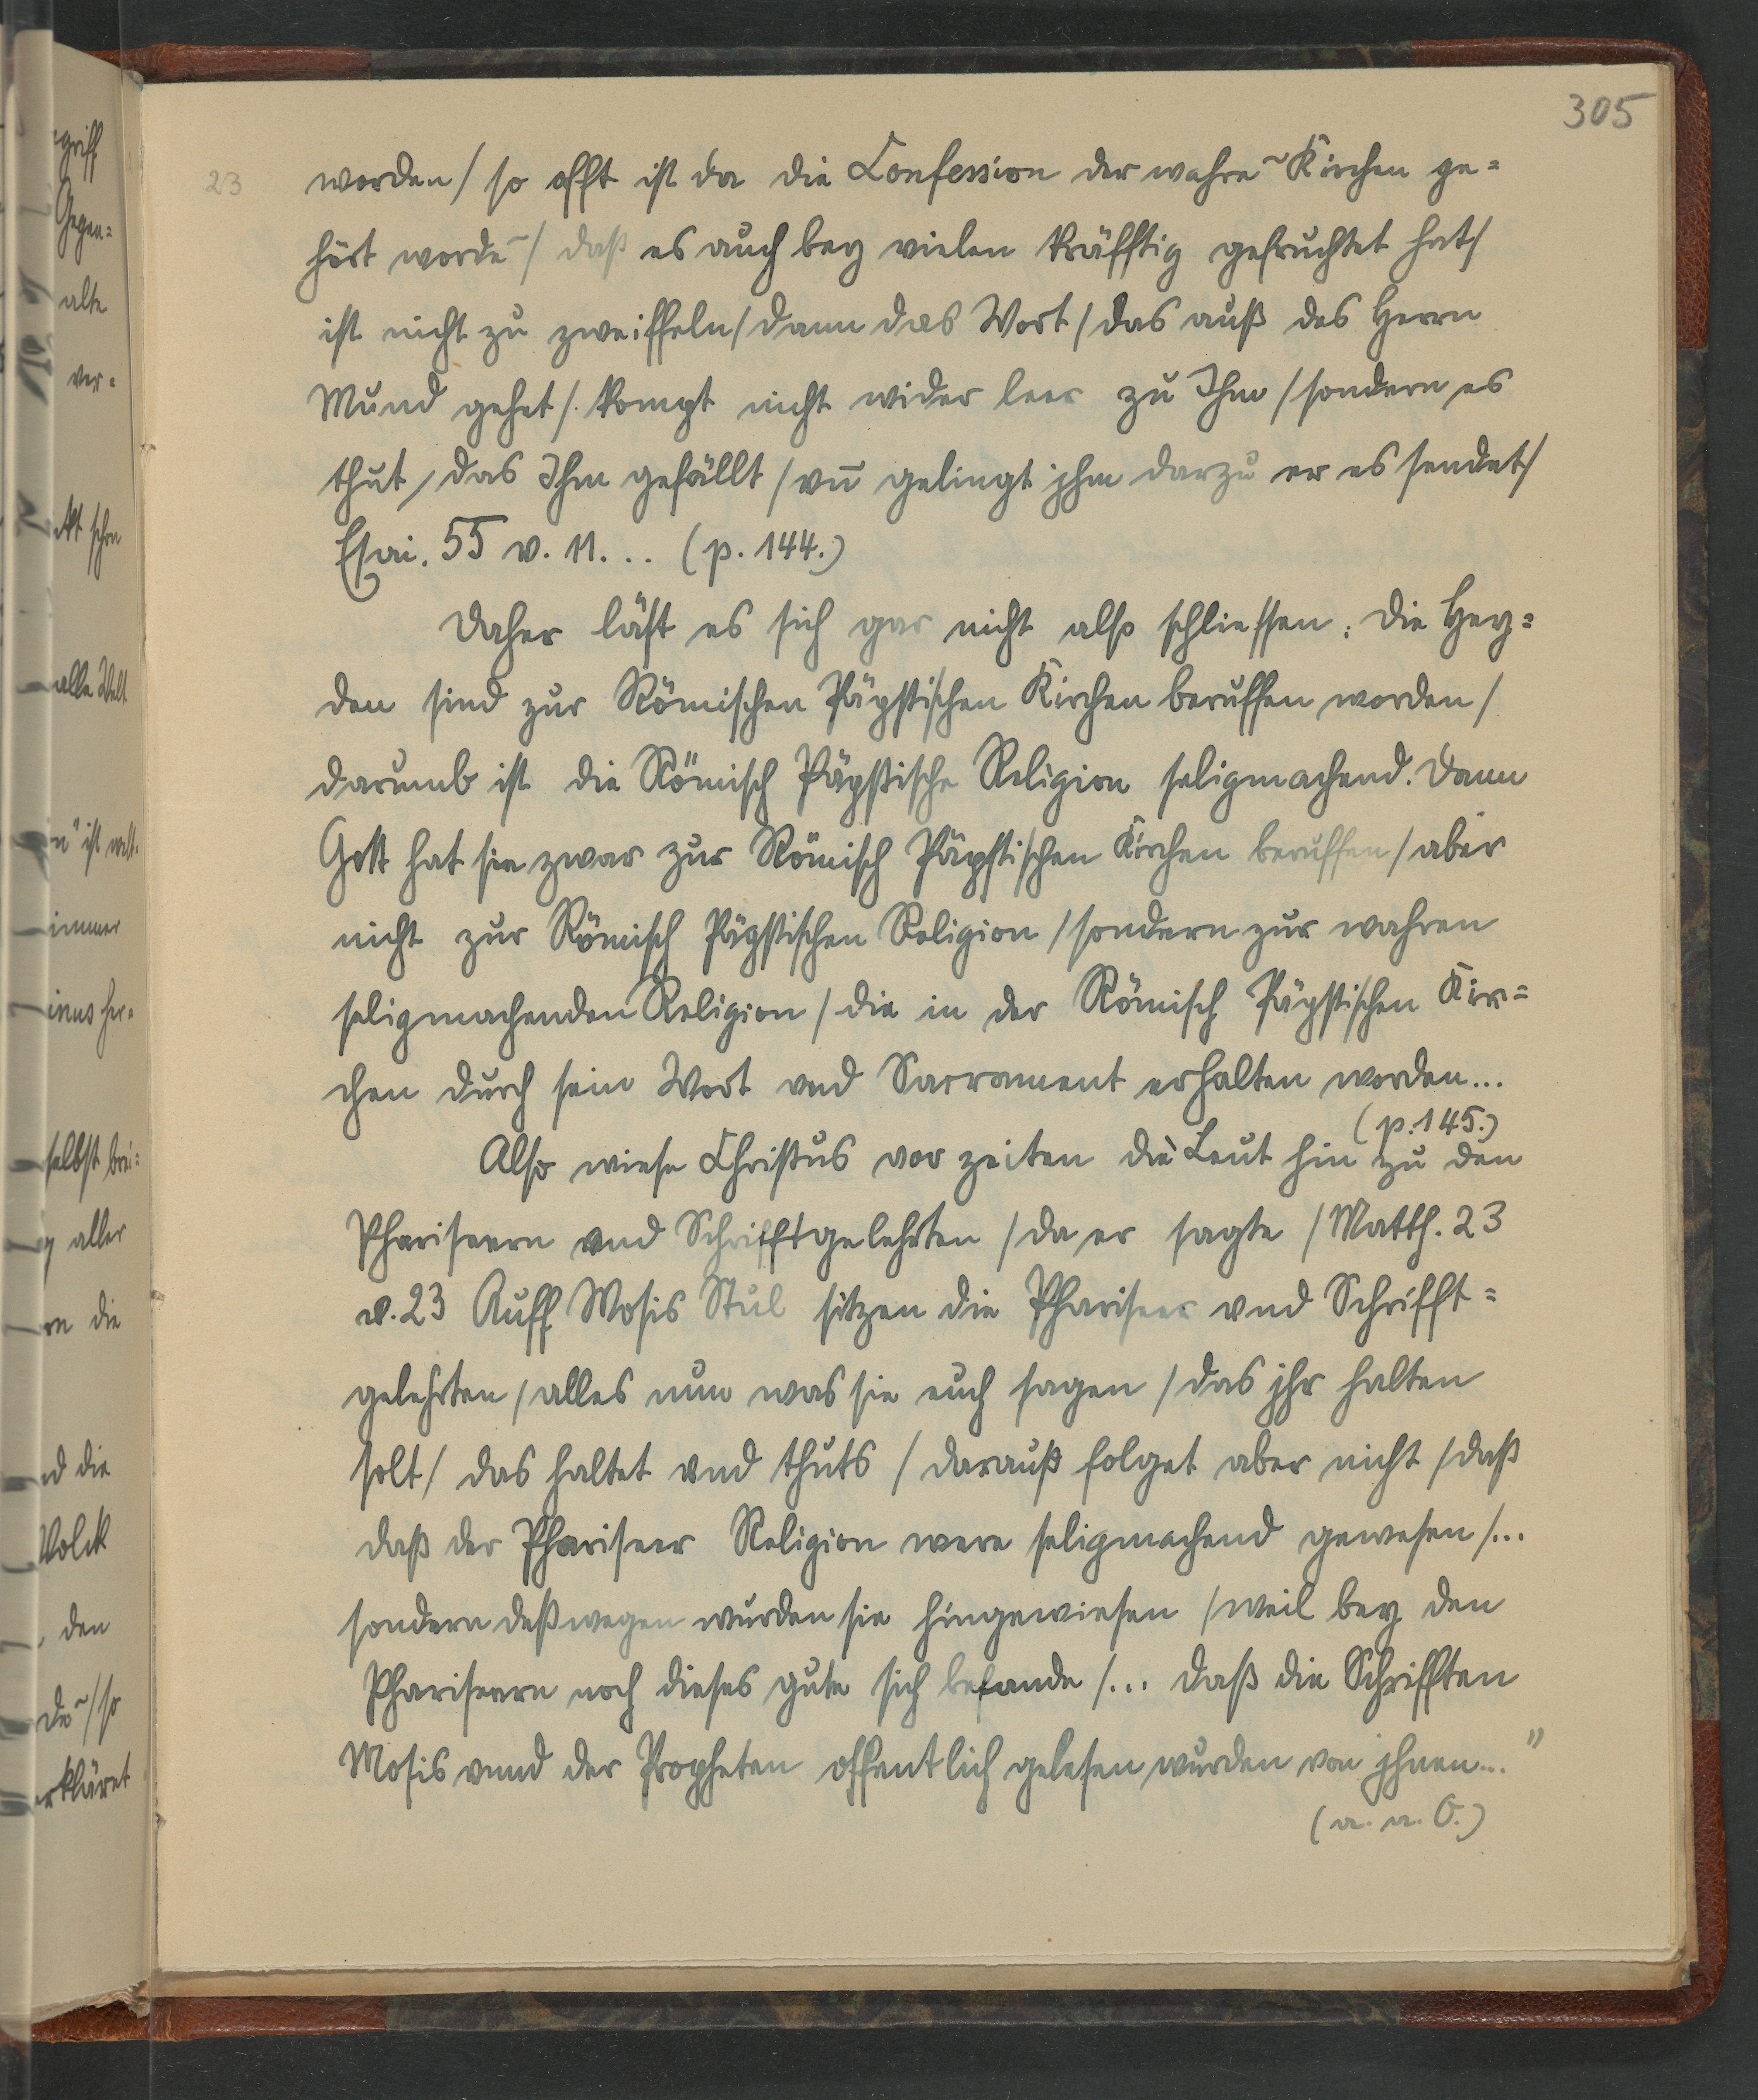 305
23 worden / so offt ist da die Confession der wahre~ Kirchen ge=
hört worde~ / daß es auch bey vielen kräfftig gefruchtet hat /
ist nicht zu zweiffeln / dann das Wort / das auß des Herrn
Mund gehet /. kompt nicht wider leer zu Ihm / sondern es
thut / das Ihm gefällt / vn̄ gelingt jhm darzu er es sendet /
Esai. 55 v. 11. .. (p. 144.)
Daher läst es sich gar nicht also schliessen: die Hey=
den sind zur Römischen Päpstischen Kirchen beruffen worden /
darumb ist die Römisch Päpstische Religion seligmachend. Dann
Gott hat sie zwar zur Römisch Päpstischen Kirchen beruffen / aber
nicht zur Römisch Päpstischen Religion / sondern zur wahren
seligmachenden Religion / die in der Römisch Päpstischen Kir=
chen durch sein Wort vnd Sacrament erhalten worden...
(p. 145.)
Also wiese Christus vor zeiten die Leut hin zu den
Phariseern vnd Schrifftgelehrten / da er sagte / Matth. 23
v. 23 Auff Mosis Stul sitzen die Phariseer vnd Schrifft=
gelehrten / alles nun was sie euch sagen / das jhr halten
solt / das haltet vnd thuts / darauß folget aber nicht / daß
daß der Phariseer Religion were seligmachend gewesen /...
sondern deßwegen wurden sie hingewiesen / weil bey den
Phariseern noch dieses gute sich befande /... daß die Schrifften
Mosis vnnd der Propheten offentlich gelesen wurden von jhnen..."
(a. a. O.)
griff
Gegen=
alte
ver=
schon
alle Welt
ist
immer
her=
selbst
aller
die
die
Volck
den
de~ / so
erkläret